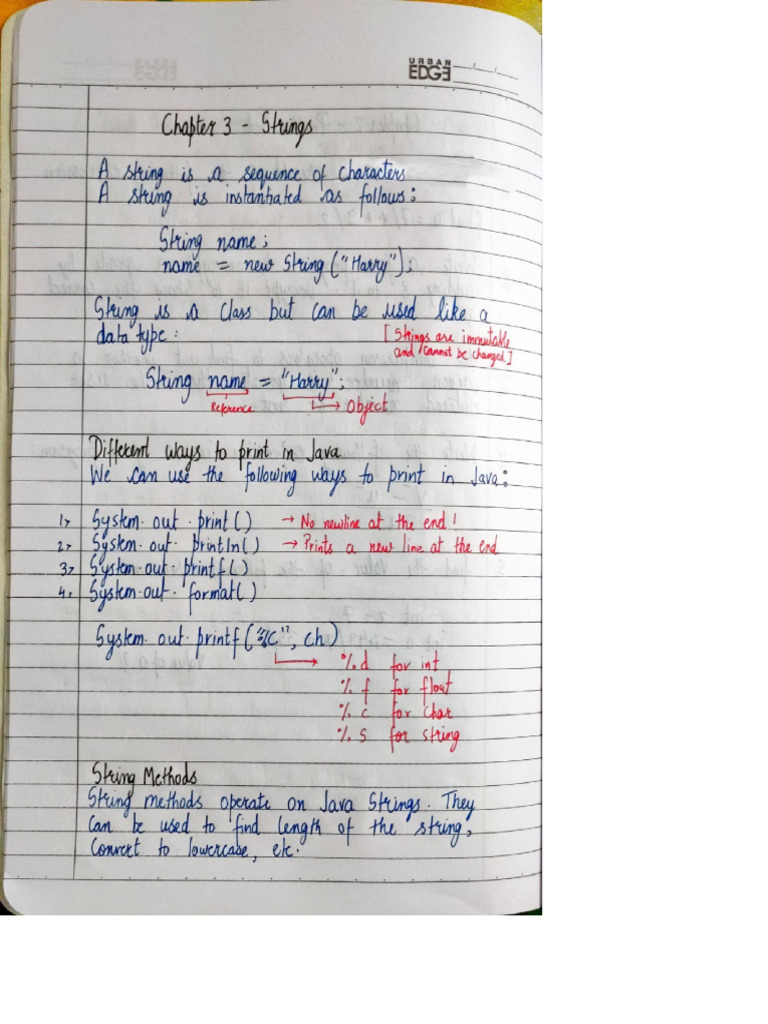 URBAN
EDGE
Chapter 3 - Strings
A string is a sequence of characters
A string is instantiated as follows:
String name;
name = new String ("Harry");
String is a class but can be used like a
data type:
[Strings are immutable
and cannot be changed]
String name = "Harry";
Reference
Object
Different ways to print in Java
We can use the following ways to print in Java:
1> System.out.print() → No newline at the end!
2> System.out.println() → Prints a new line at the end
3> System.out.printf()
4. System.out.format()
System.out.printf("%c", ch)
%d for int
%f for float
%c for char
%s for string
String Methods
String methods operate on Java Strings. They
can be used to find length of the string,
convert to lowercase, etc.